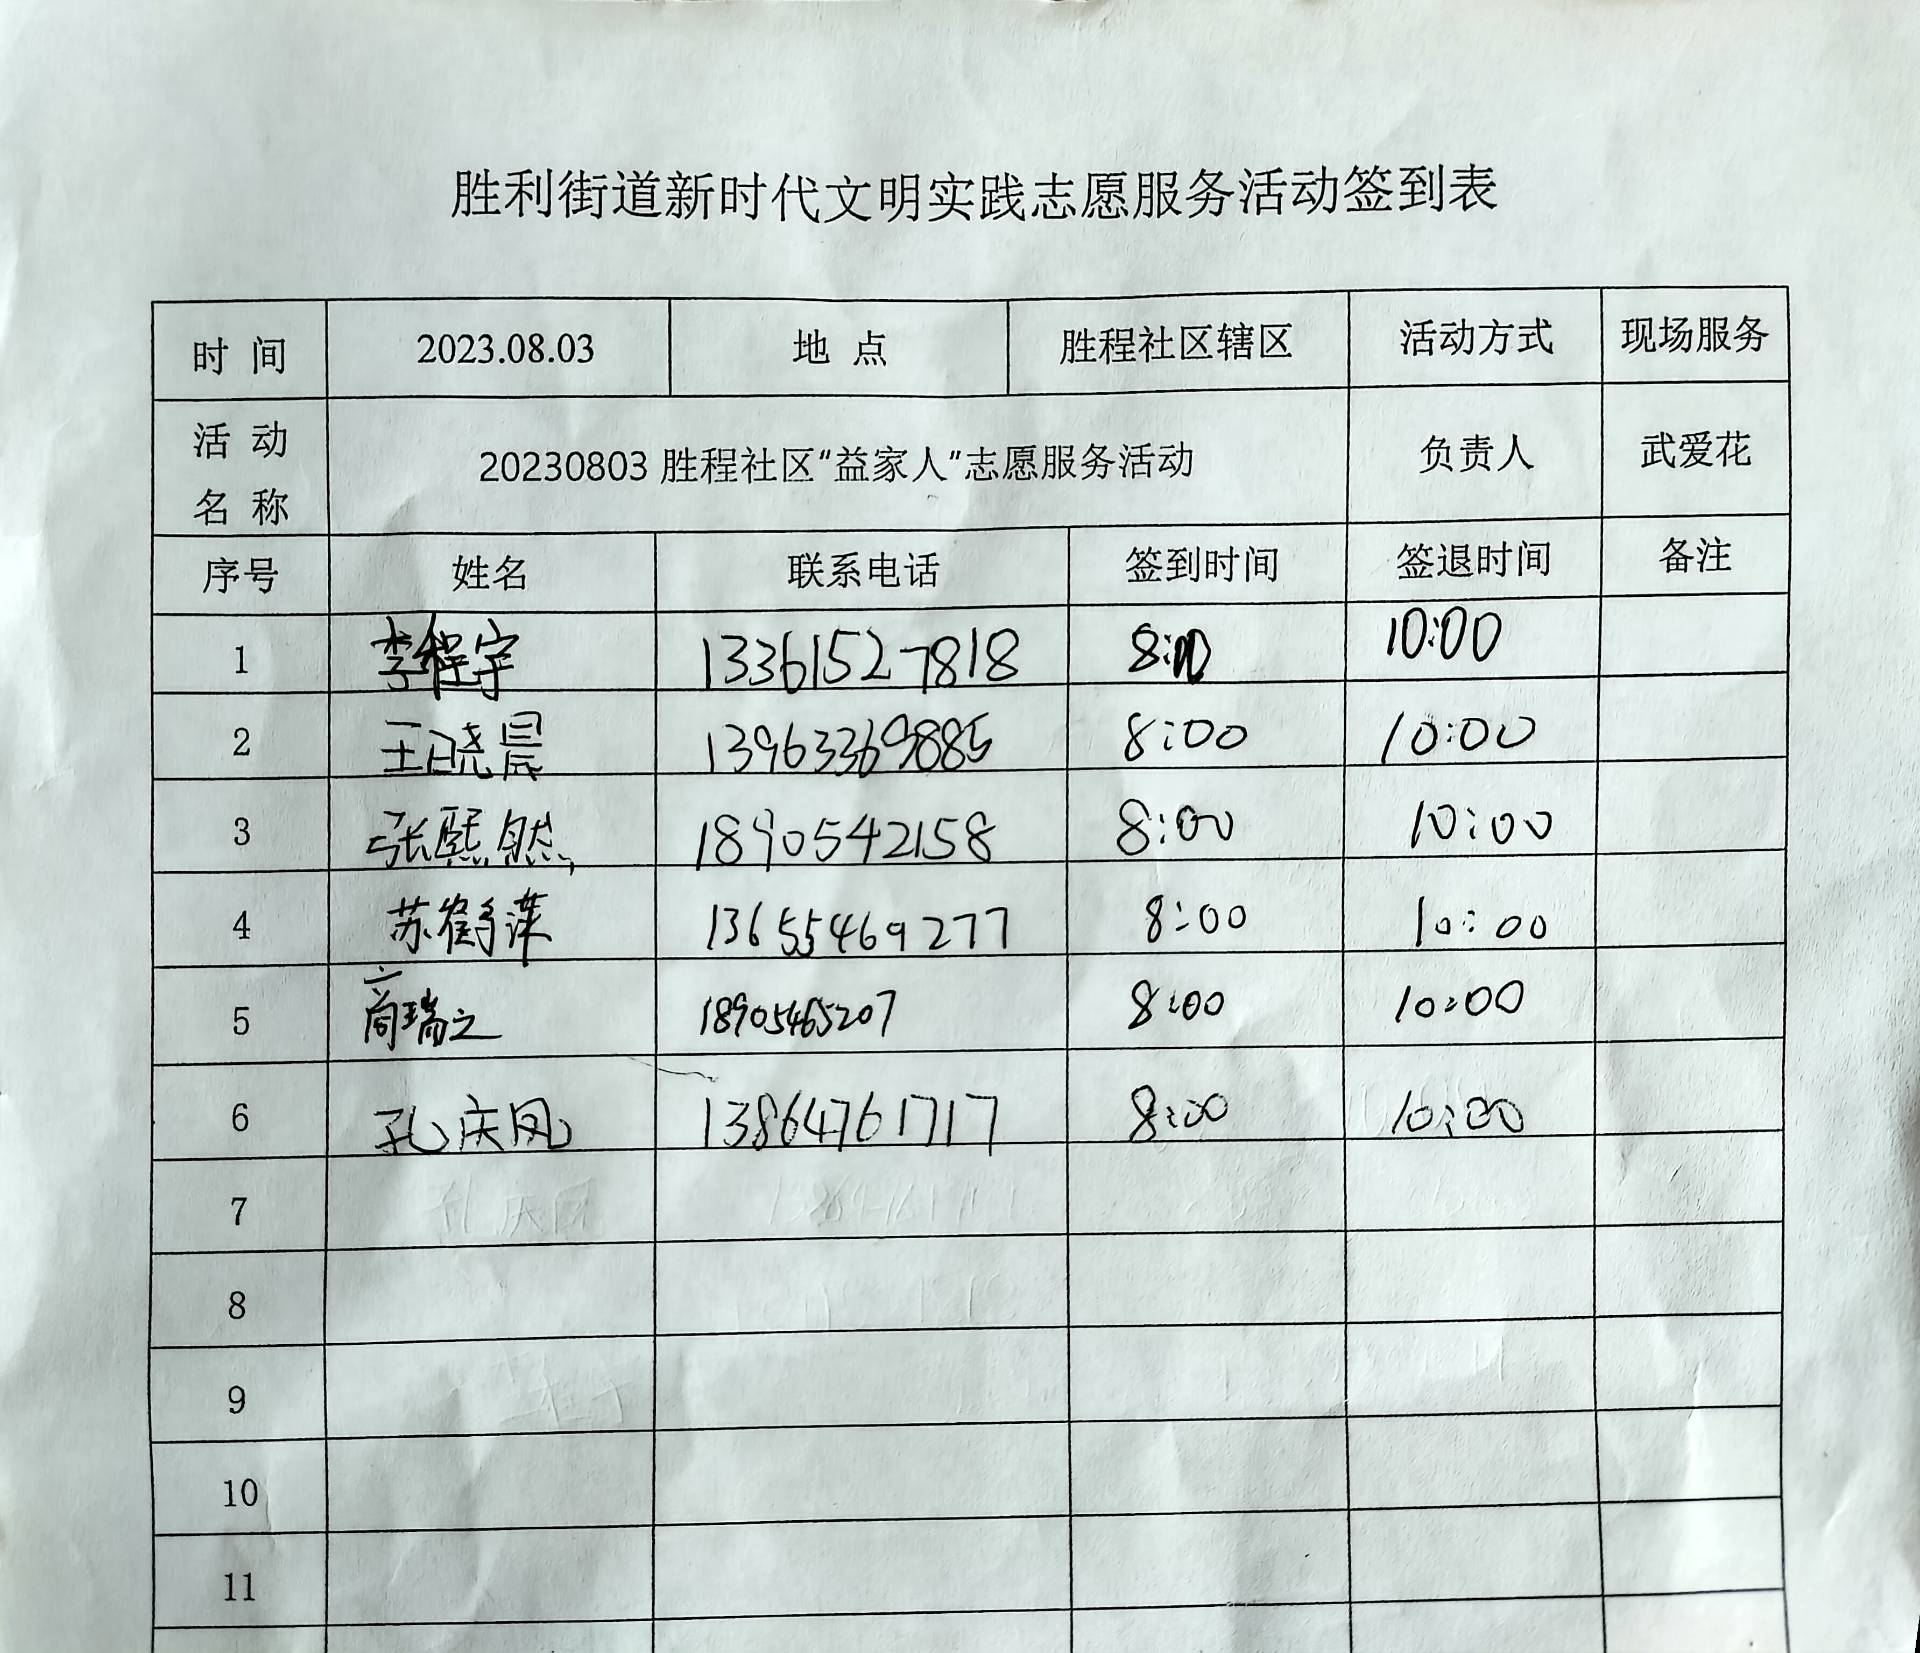 胜利街道新时代文明实践志愿服务活动签到表
时 间 2023.08.03 地 点 胜程社区辖区 活动方式 现场服务
活 动 名 称 20230803 胜程社区“益家人”志愿服务活动 负责人 武爱花
序号 姓名 联系电话 签到时间 签退时间 备注
1 李程宇 13361527818 8:00 10:00
2 王晓晨 13963369885 8:00 10:00
3 张熙然 1890542158 8:00 10:00
4 苏鹤 13655469277 8:00 10:00
5 商瑞之 18905465207 8:00 10:00
6 孔庆凤 13864761717 8:00 10:00
7
8
9
10
11